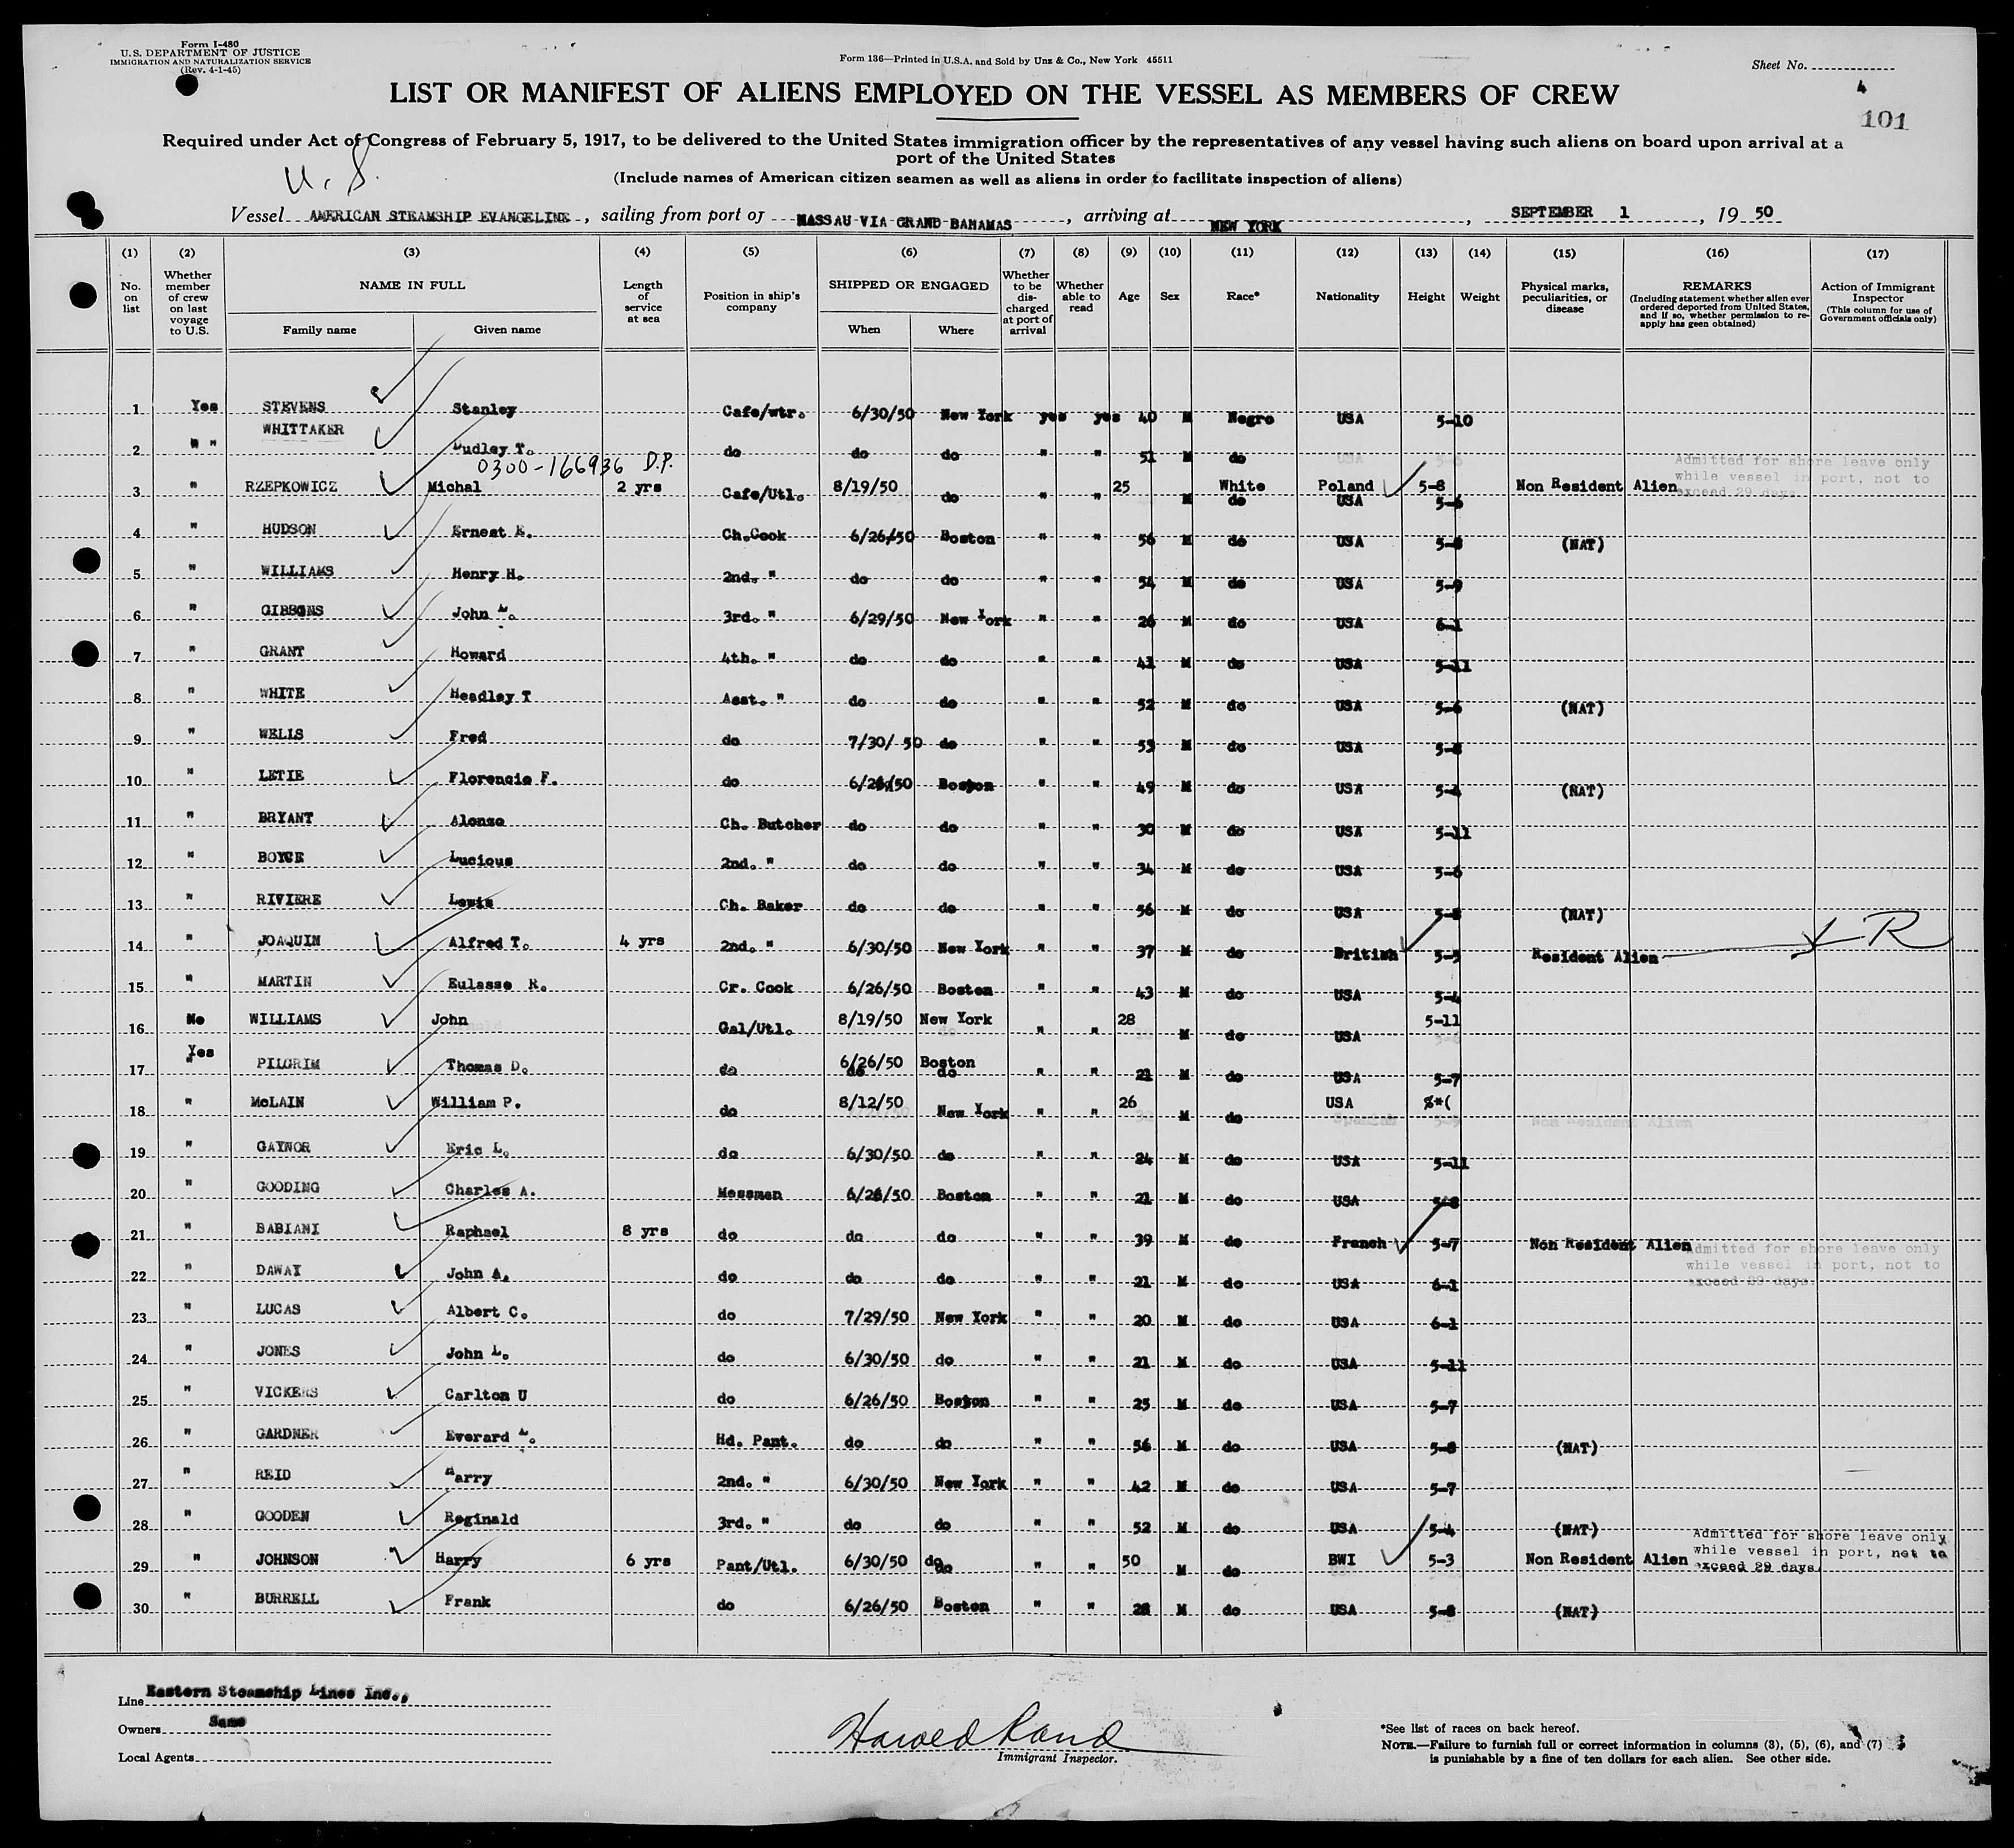 Form I-480
U.S. DEPARTMENT OF JUSTICE
IMMIGRATION AND NATURALIZATION SERVICE
(Rev. 4-1-45)
Form 136—Printed in U.S.A. and Sold by Unz & Co., New York 45511
Sheet No.
4
LIST OR MANIFEST OF ALIENS EMPLOYED ON THE VESSEL AS MEMBERS OF CREW
101
Required under Act of Congress of February 5, 1917, to be delivered to the United States immigration officer by the representatives of any vessel having such aliens on board upon arrival at a
port of the United States
U. S.
(Include names of American citizen seamen as well as aliens in order to facilitate inspection of aliens)
Vessel AMERICAN STEAMSHIP EVANGELINE, sailing from port of NASSAU VIA GRAND BAHAMAS, arriving at NEW YORK, SEPTEMBER 1, 19 50
(1) (2) (3) (4) (5) (6) (7) (8) (9) (10) (11) (12) (13) (14) (15) (16) (17)
No. on list
Whether member of crew on last voyage to U.S.
NAME IN FULL
Family name
Given name
Length of service at sea
Position in ship's company
SHIPPED OR ENGAGED
When
Where
Whether to be discharged at port of arrival
Whether able to read
Age
Sex
Race*
Nationality
Height
Weight
Physical marks, peculiarities, or disease
REMARKS
(Including statement whether alien ever ordered deported from United States, and if so, whether permission to re-apply has geen obtained)
Action of Immigrant Inspector
(This column for use of Government officials only)
1 Yes STEVENS Stanley Cafe/wtr. 6/30/50 New York yes yes 40 M Negro USA 5-10
2 " " WHITTAKER Dudley T. do do do " " 51 M do
0300-166936 D.P.
3 " RZEPKOWICZ Michal 2 yrs Cafe/Utl. 8/19/50 do " " 25 M White do Poland USA 5-8 5-6 Non Resident Alien
Admitted for shore leave only
while vessel in port, not to
exceed 29 days.
4 " HUDSON Ernest E. Ch.Cook 6/26/50 Boston " " 56 M do USA 5-8 (NAT)
5 " WILLIAMS Henry H. 2nd. " do do " " 54 M do USA 5-9
6 " GIBBONS John L. 3rd. " 6/29/50 New York " " 26 M do USA 6-1
7 " GRANT Howard 4th. " do do " " 41 M do USA 5-11
8 " WHITE Headley T Asst. " do do " " 52 M do USA 5-6 (NAT)
9 " WELLS Fred do 7/30/ 50 do " " 53 M do USA 5-8
10 " LETIE Florencio F. do 6/26/50 Boston " " 49 M do USA 5-4 (NAT)
11 " BRYANT Alonzo Ch. Butcher do do " " 30 M do USA 5-11
12 " BOYCE Lucious 2nd. " do do " " 34 M do USA 5-6
13 " RIVIERE Lewis Ch. Baker do do " " 56 M do USA 5-8 (NAT)
14 " JOAQUIM Alfred T. 4 yrs 2nd. " 6/30/50 New York " " 37 M do British 5-5 Resident Alien R
15 " MARTIN Eulasse R. Cr. Cook 6/26/50 Boston " " 43 M do USA 5-4
16 No WILLIAMS John Gal/Utl. 8/19/50 New York " " 28 M do USA 5-11
17 Yes " PILGRIM Thomas D. do 6/26/50 do Boston do " " 21 M do USA 5-7
18 " McLAIN William P. do 8/12/50 New York " " 26 M do USA $*(
Spanish Non Resident Alien
19 " GAYNOR Eric L. do 6/30/50 do " " 24 M do USA 5-11
20 " GOODING Charles A. Messman 6/26/50 Boston " " 21 M do USA 5-8
21 " BABIANI Raphael 8 yrs do do do " " 39 M do French 5-7 Non Resident Alien
Admitted for shore leave only
while vessel in port, not to
exceed 29 days.
22 " DAWAY John A. do do do " " 21 M do USA 6-1
23 " LUCAS Albert C. do 7/29/50 New York " " 20 M do USA 6-1
24 " JONES John L. do 6/30/50 do " " 21 M do USA 5-11
25 " VICKERS Carlton U do 6/26/50 Boston " " 25 M do USA 5-7
26 " GARDNER Everard L. Hd. Pant. do do " " 56 M do USA 5-8 (NAT)
27 " REID Harry 2nd. " 6/30/50 New York " " 42 M do USA 5-7
28 " GOODEN Reginald 3rd. " do do " " 52 M do USA 5-4 (NAT)
29 " JOHNSON Harry 6 yrs Pant/Utl. 6/30/50 do do " " 50 M do BWI 5-3 Non Resident Alien
Admitted for shore leave only
while vessel in port, not to
exceed 29 days.
30 " BURRELL Frank do 6/26/50 Boston " " 28 M do USA 5-8 (NAT)
Line Eastern Steamship Lines Inc.,
Owners Same
Local Agents
Harold Rand
Immigrant Inspector.
*See list of races on back hereof.
NOTE.—Failure to furnish full or correct information in columns (3), (5), (6), and (7)
is punishable by a fine of ten dollars for each alien. See other side.